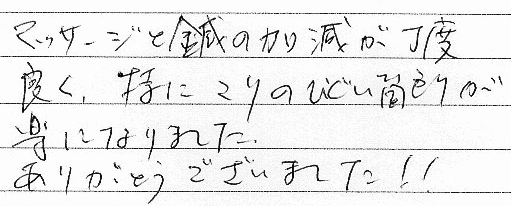 マッサージと鍼の加減が丁度
良く、特にコリのひどい箇所が
楽になりました.
ありがとうございました!!